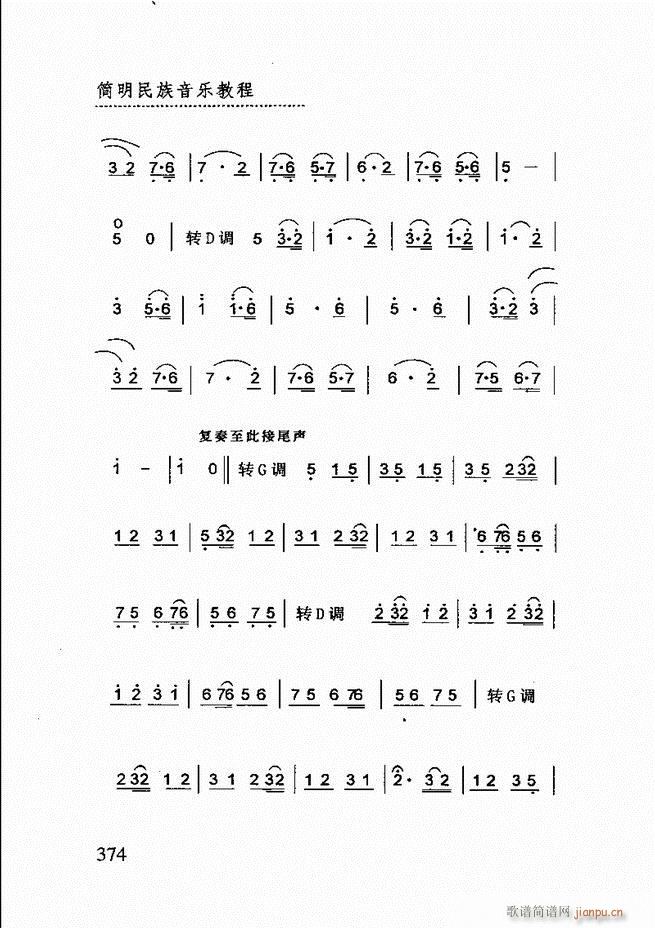 简明民族音乐教程
3 2 7·6 | 7 · 2 | 7·6 5·7 | 6·2 | 7·6 5·6 | 5 — |
5 0 | 转D调 5 3·2 | 1 · 2 | 3·2 1·2 | 1·2 |
3 5·6 | 1 1·6 | 5 · 6 | 5 · 6 | 3·2 3 |
3 2 7·6 | 7 · 2 | 7·6 5·7 | 6 · 2 | 7·5 6·7 |
复奏至此接尾声
1 – | 1 0 || 转G调 5 1 5 | 3 5 1 5 | 3 5 2 32 |
1 2 3 1 | 5 32 1 2 | 3 1 2 32 | 1 2 3 1 | 6 76 5 6 |
7 5 6 76 | 5 6 7 5 | 转D调 2 32 1 2 | 3 1 2 32 |
1 2 3 1 | 6 76 5 6 | 7 5 6 76 | 5 6 7 5 | 转G调
2 32 1 2 | 3 1 2 32 | 1 2 3 1 | 2· 3 2 | 1 2 3 5 |
374
歌谱简谱网 jianpu.cn